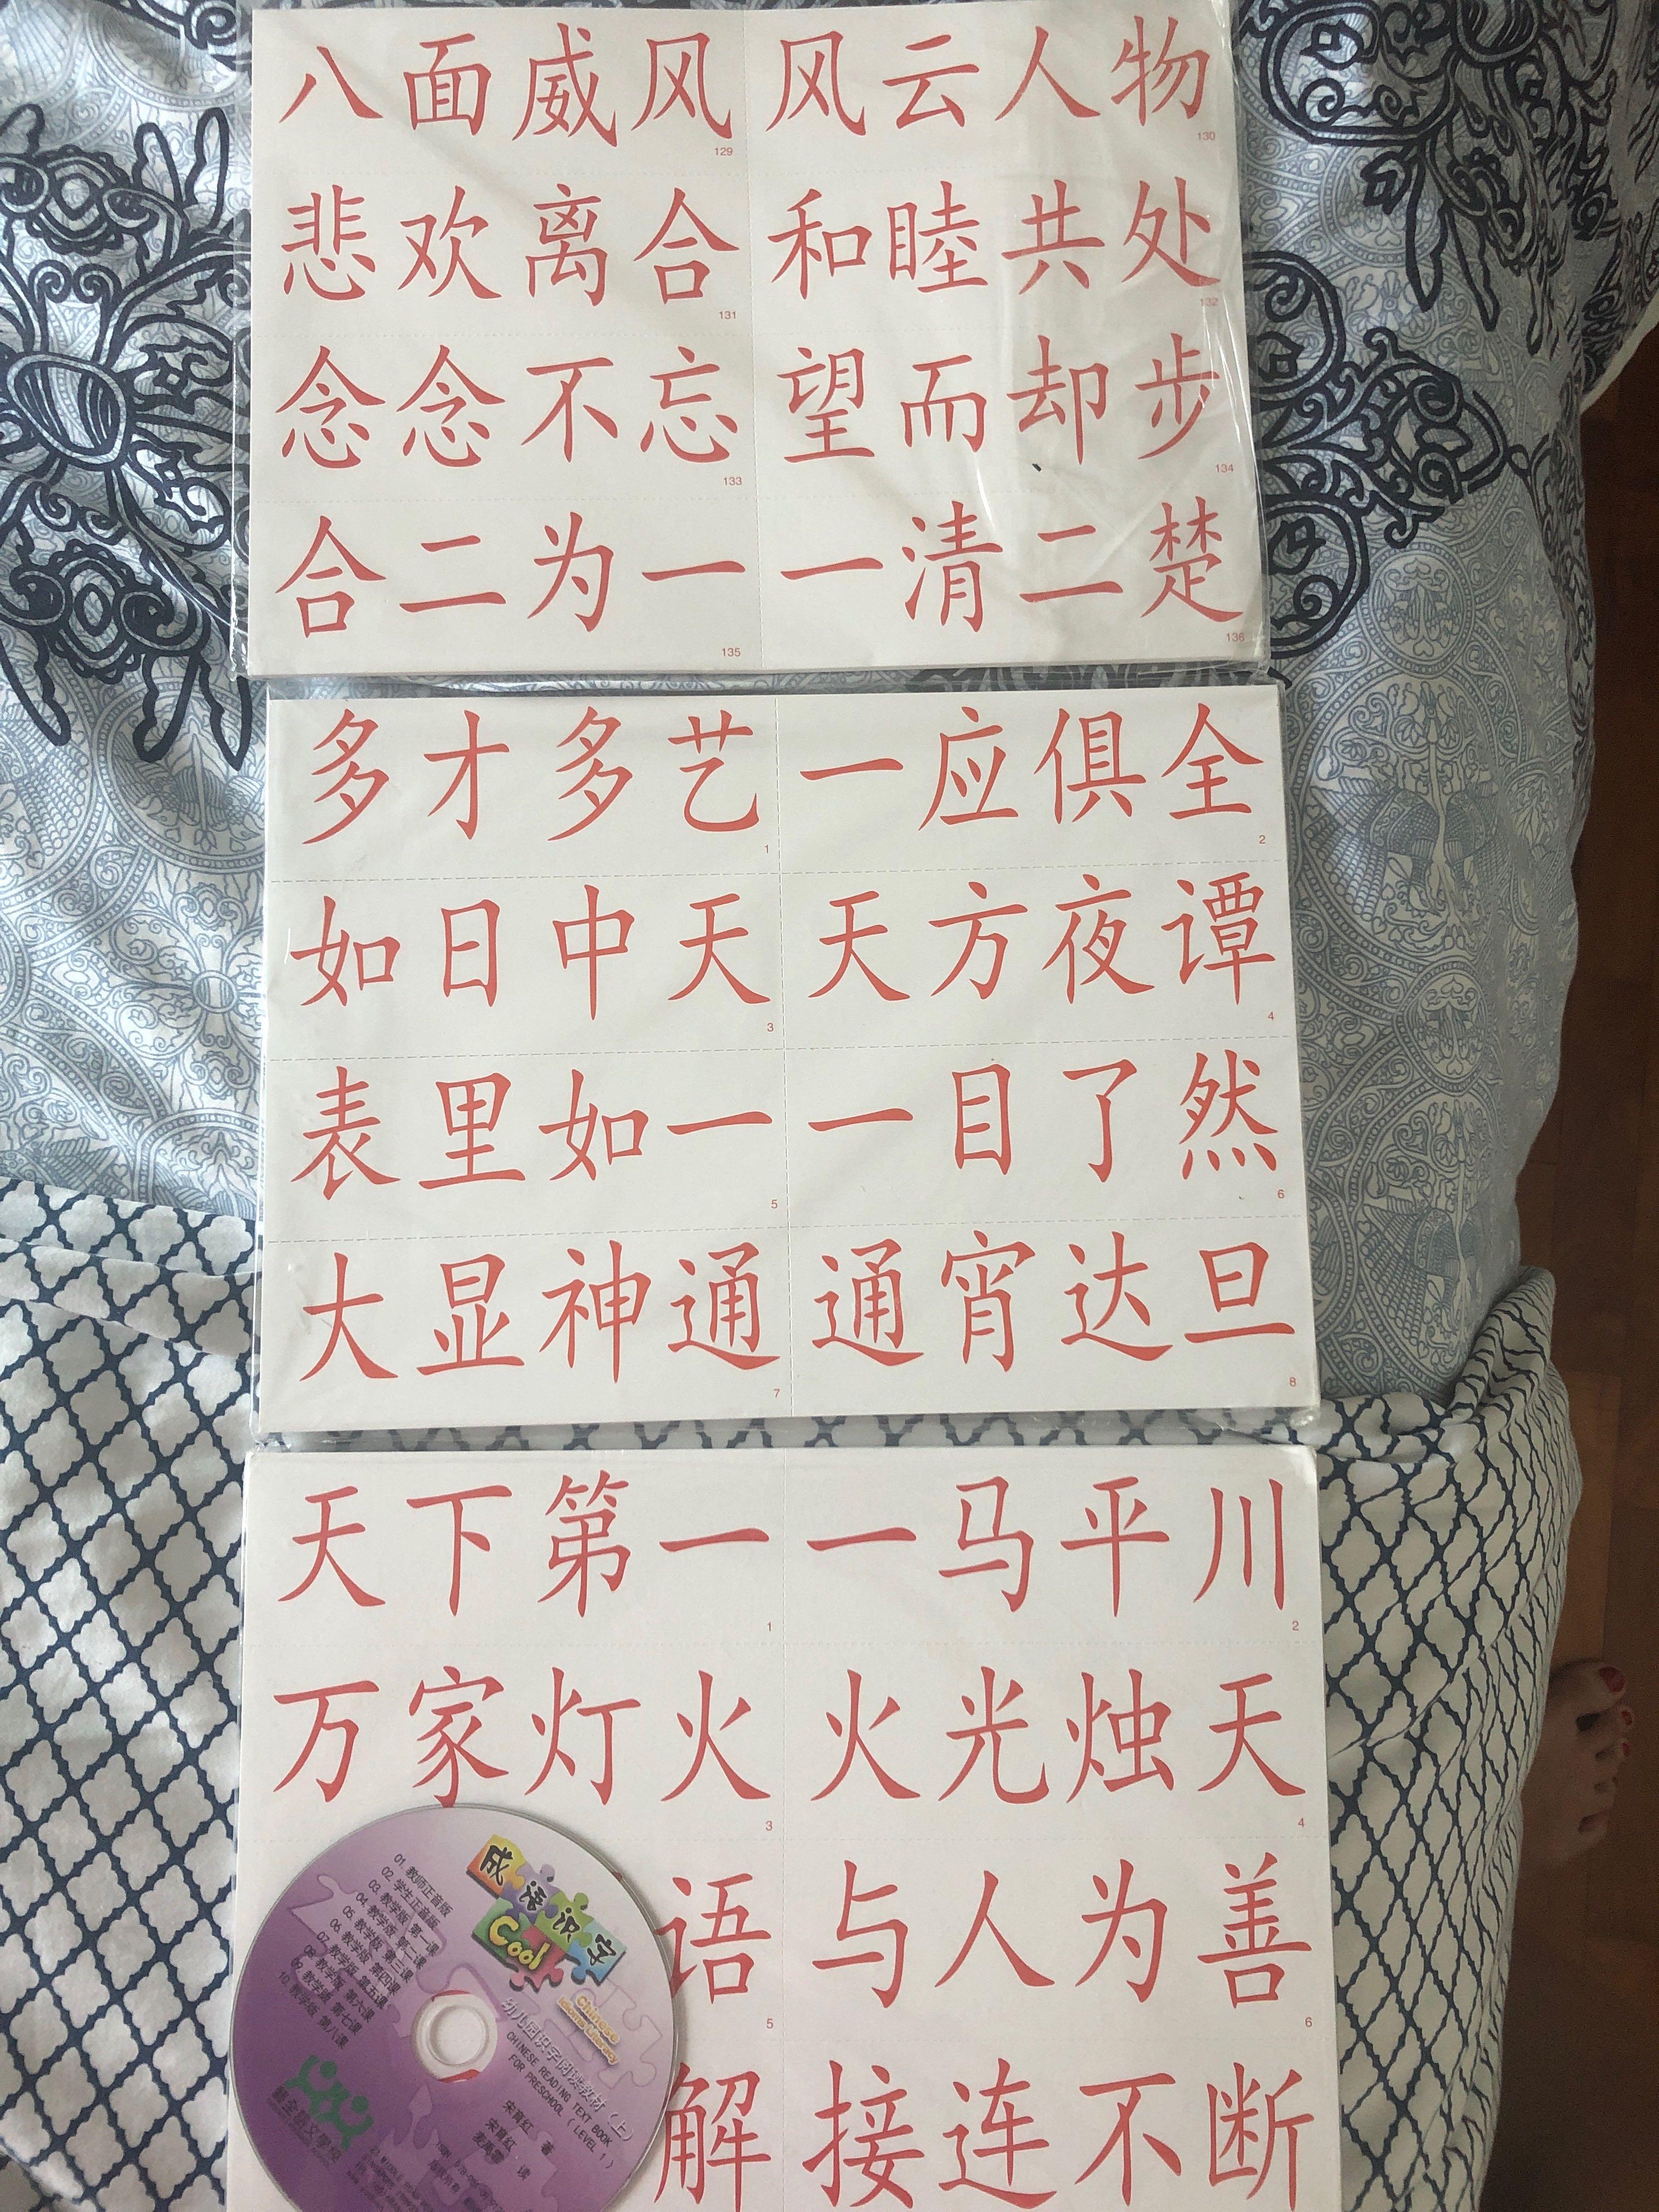 八面威风 风云人物
129 130
悲欢离合 和睦共处
131 132
念念不忘 望而却步
133 134
合二为一 一清二楚
135 136
多才多艺 一应俱全
1 2
如日中天 天方夜谭
3 4
表里如一 一目了然
5 6
大显神通 通宵达旦
7 8
天下第一 一马平川
1 2
万家灯火 火光烛天
3 4
语 与人为善
5 6
解 接连不断
成语识字
Cool
Chinese
Idioms Literacy
01. 教师正音版
02. 学生正音版
03. 教学版 第一课
04. 教学版 第二课
05. 教学版 第三课
06. 教学版 第四课
07. 教学版 第五课
08. 教学版 第六课
09. 教学版 第七课
10. 教学版 第八课
幼儿园识字阅读教材(上)
CHINESE READING TEXT BOOK
FOR PRESCHOOL (LEVEL 1)
宋育红 著